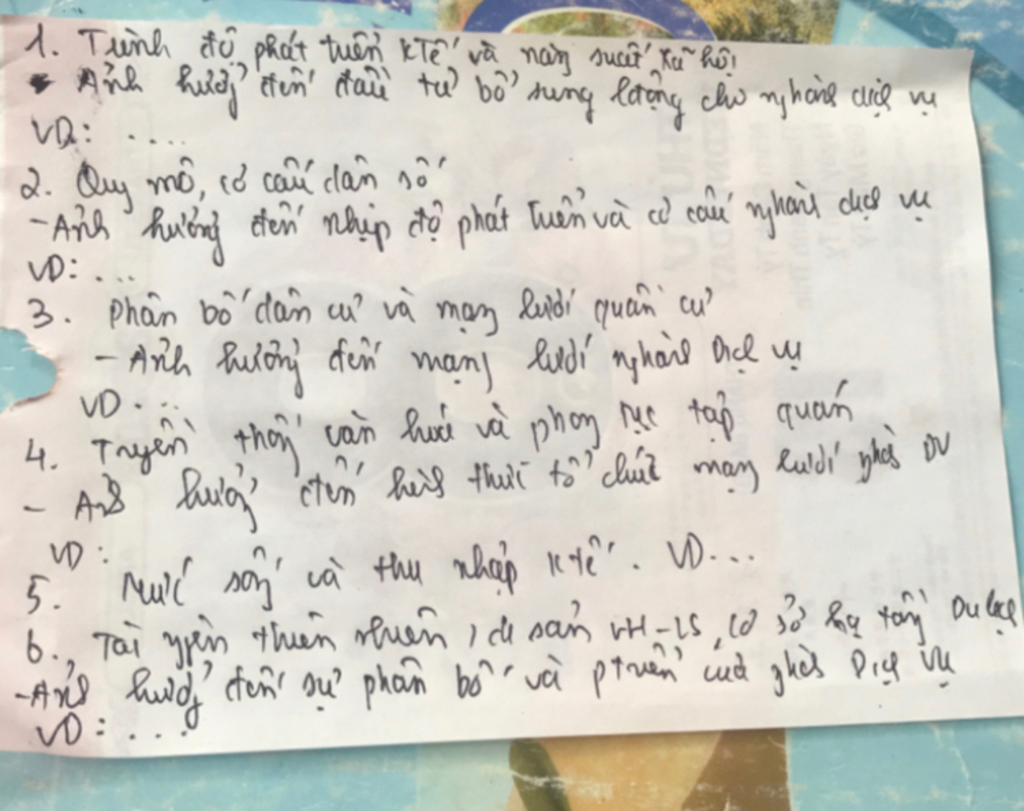 1. Trình độ phát triển KTế và năng suất xã hội
- Ảnh hưởng đến đầu tư bổ sung lao động cho nghành dịch vụ
VD: ....
2. Quy mô, cơ cấu dân số
- Ảnh hưởng đến nhịp độ phát triển và cơ cấu nghành dịch vụ
VD: ...
3. Phân bố dân cư và mạng lưới quần cư
- Ảnh hưởng đến mạng lưới nghành Dịch vụ
VD...
4. Truyền thống văn hoá và phong tục tập quán
- Ảnh hưởng đến hình thức tổ chức mạng lưới nghành DV
VD:
5. Mức sống và thu nhập K tế. VD...
6. Tài nguyên thiên nhiên, di sản VH-LS, cơ sở hạ tầng Du lịch
- Ảnh hưởng đến sự phân bố và ptriển của nghành Dịch Vụ
VD: ...